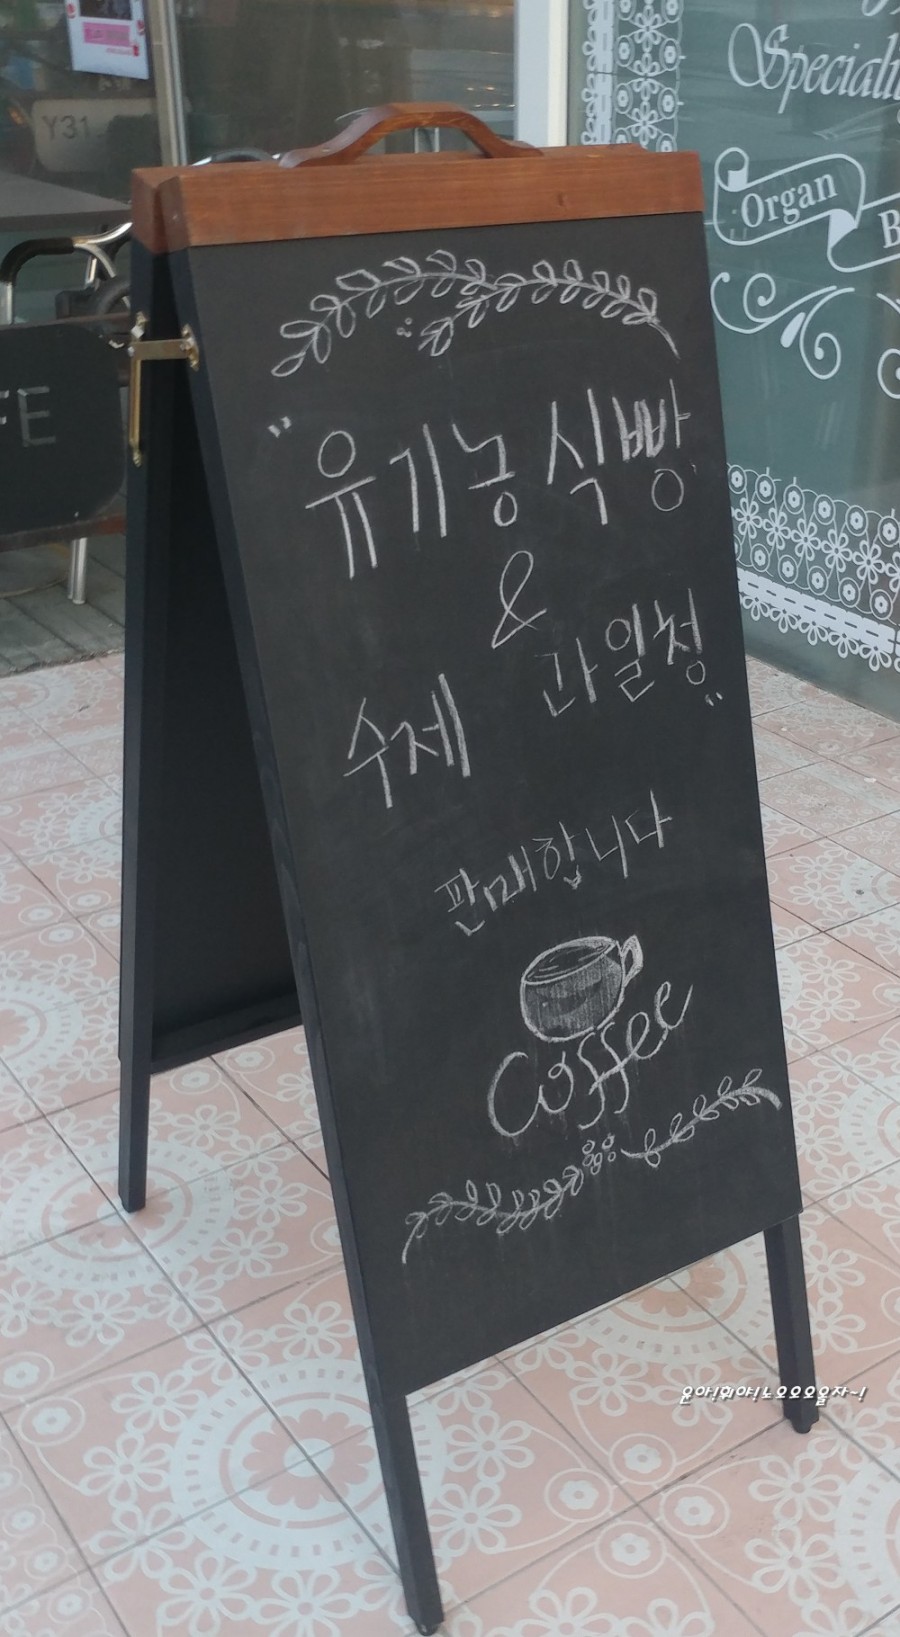 Y31
Speciali
Organ
B
FE
"유기농 식빵
&
수제 과일청"
판매합니다
Coffee